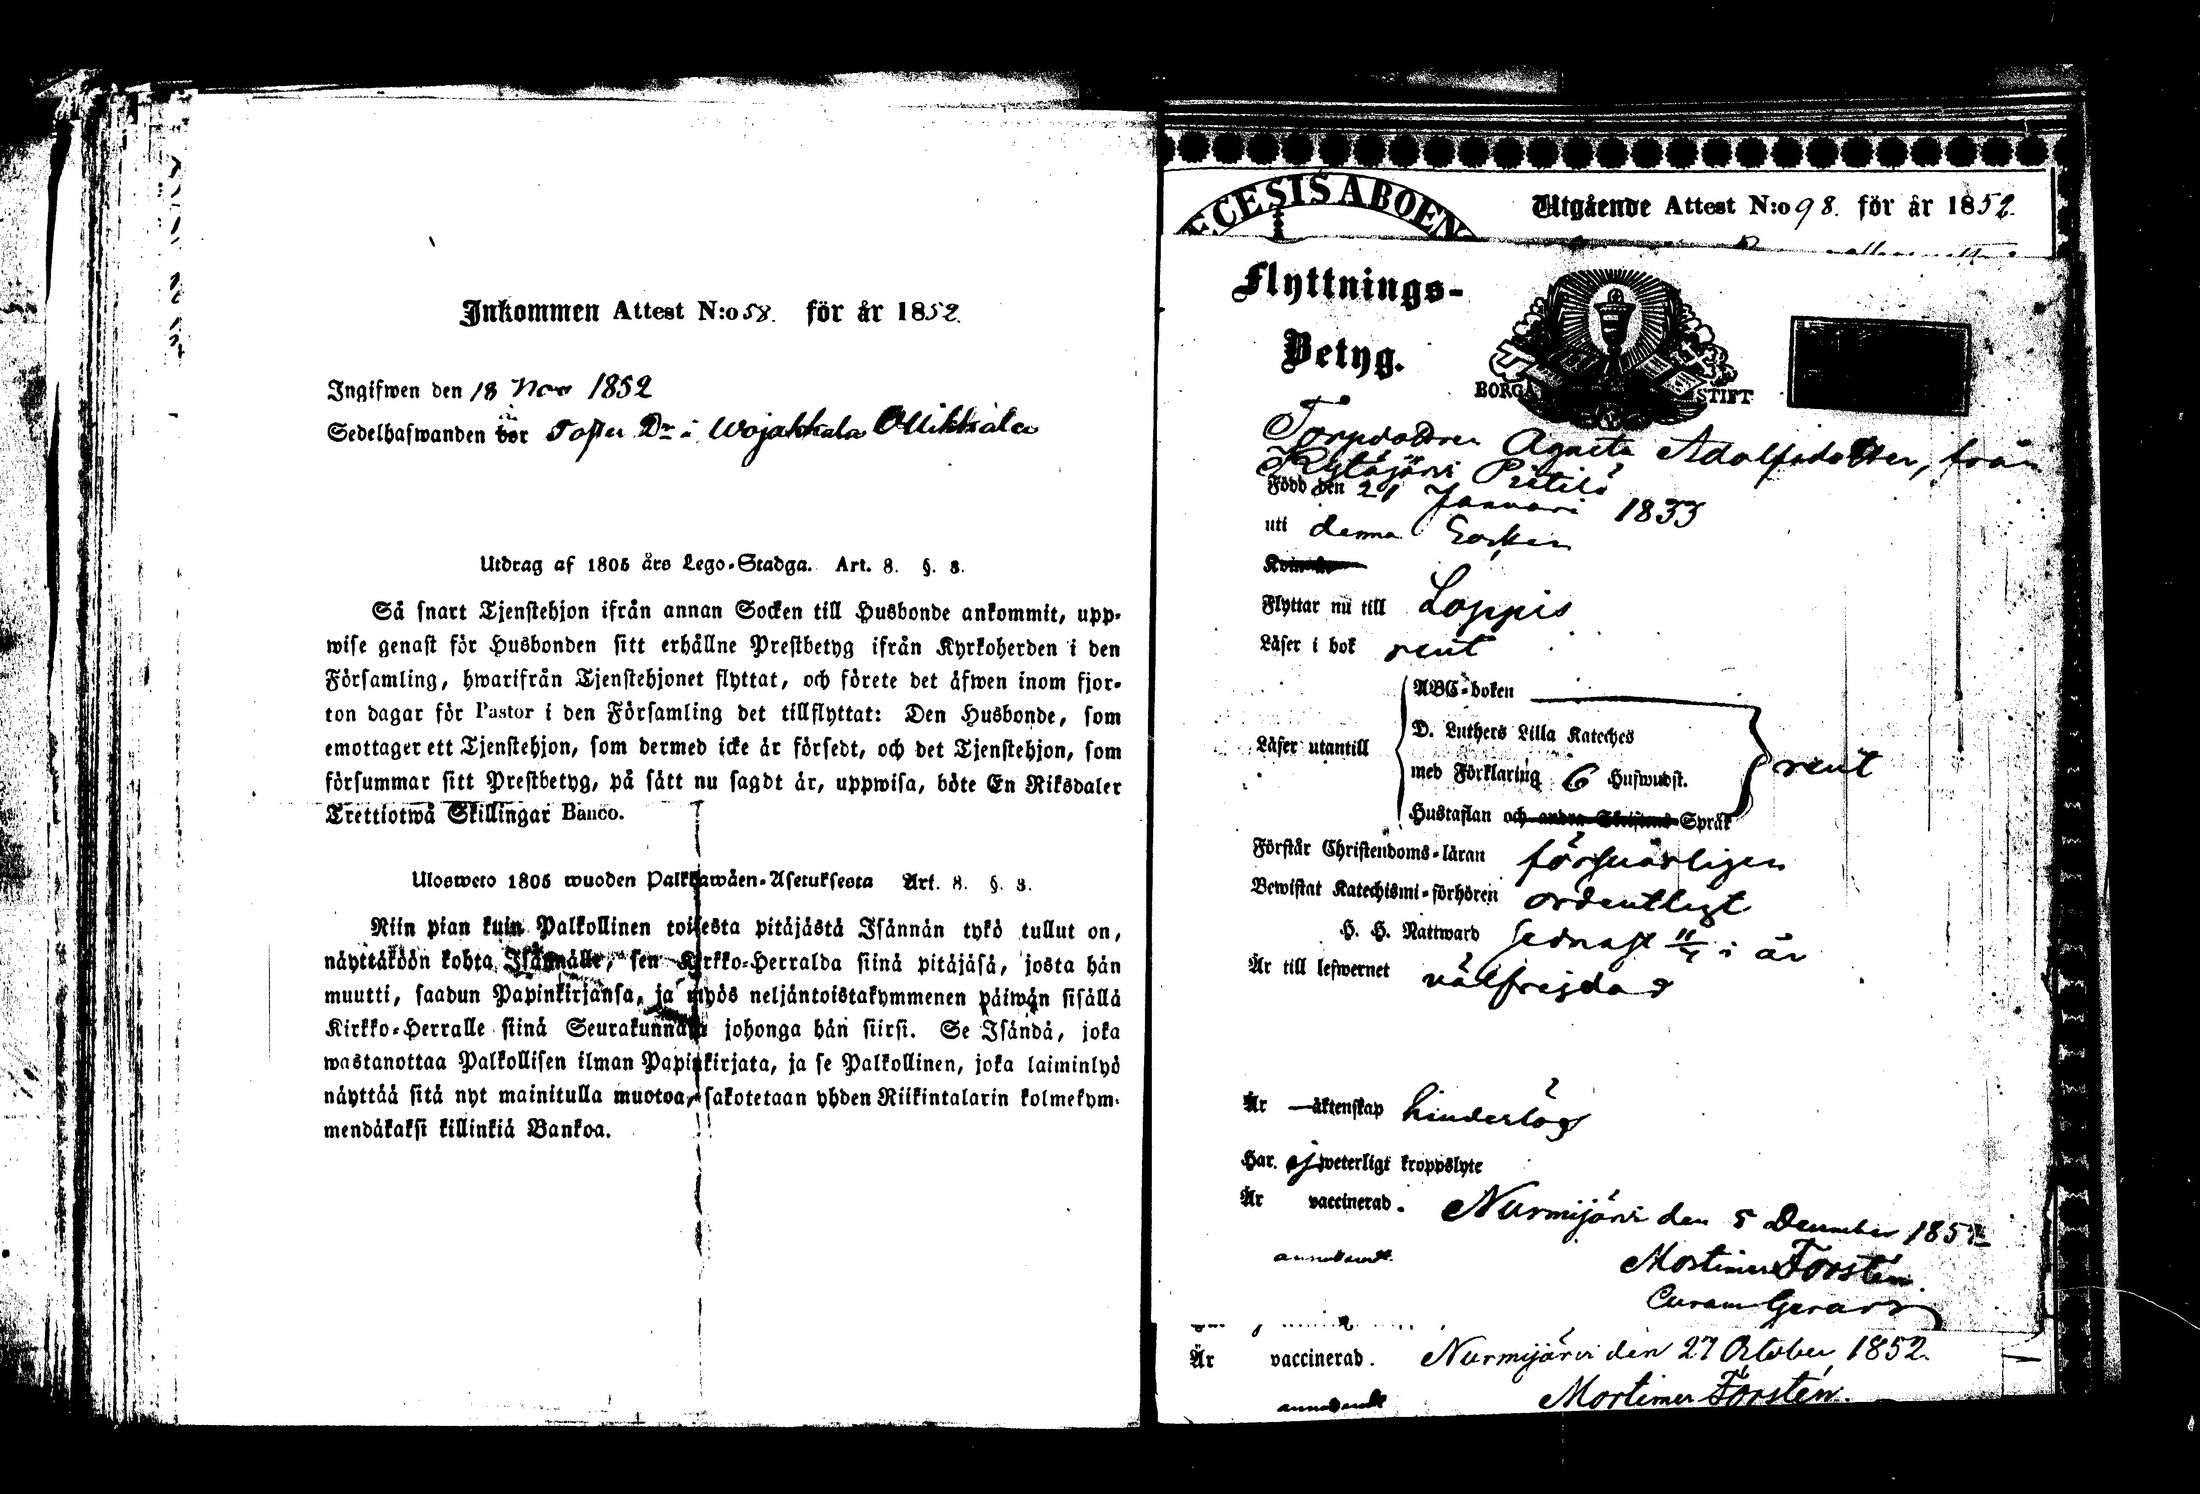 Inkommen Attest N:o 58. för år 1852.
Ingifwen den 18 Nov 1852
Sedelhafwanden bor Wojakkala Ollikkala
Utdrag af 1805 års Lego-Stadga. Art. 8. §. 3.
Så snart Tjenstehjon ifrån annan Socken till Husbonde ankommit, upp-
wise genast för Husbonden sitt erhållne Prestbetyg ifrån Kyrkoherden i den
Församling, hwarifrån Tjenstehjonet flyttat, och förete det äfwen inom fjor-
ton dagar för Pastor i den Församling det tillflyttat: Den Husbonde, som
emottager ett Tjenstehjon, som dermed icke är försedt, och det Tjenstehjon, som
försummar sitt Prestbetyg, på sätt nu sagdt är, uppwisa, böte En Riksdaler
Trettiotwå Skillingar Banco.
Ulosweto 1805 wuoden Palkkawäen-Asetuksesta Art. 8. §. 3.
Niin pian kuin Palkollinen toisesta pitäjästä Isännän tykö tullut on,
näyttäköön kohta Isännälle, sen Kirkko-Herralda siinä pitäjäsä, josta hän
muutti, saadun Papinkirjansa, ja myös neljäntoistakymmenen päiwän sisällä
Kirkko-Herralle siinä Seurakunnasa johonga hän siirsi. Se Isändä, joka
wastanottaa Palkollisen ilman Papinkirjata, ja se Palkollinen, joka laiminlyö
näyttää sitä nyt mainitulla muotoa, sakotetaan yhden Riikintalarin kolmekym-
mendäkaksi killinkiä Bankoa.
ECESIS ABOEN
Utgående Attest N:o 98. för år 1852.
Flyttnings-
Betyg.
BORGÅ STIFT
Torpdottren Agneta Adolfsdotter, från
Kytäjärvi Pietilä
Född den 21 Januari 1833
uti denna Socken
Flyttar nu till Loppis
Läser i bok rent
Läser utantill
ABC-boken
D. Luthers Lilla Kateches
med Förklaring 6 Hufwudst.
Hustaflan och andra Skriftens Språk
rent
Förstår Christendoms-läran försvarligen
Bewistat Katechismi-förhören ordentligt
H. H. Nattward sednast i år
Är till lefwernet välfrejdad
Är äktenskap hinderlös
Har ej weterligt kroppslyte
Är vaccinerad. Nurmijärvi den 5 December 1852
Mortimer Forstén
Curam Gerars
Är vaccinerad. Nurmijärvi den 27 October 1852.
Mortimer Forstén.